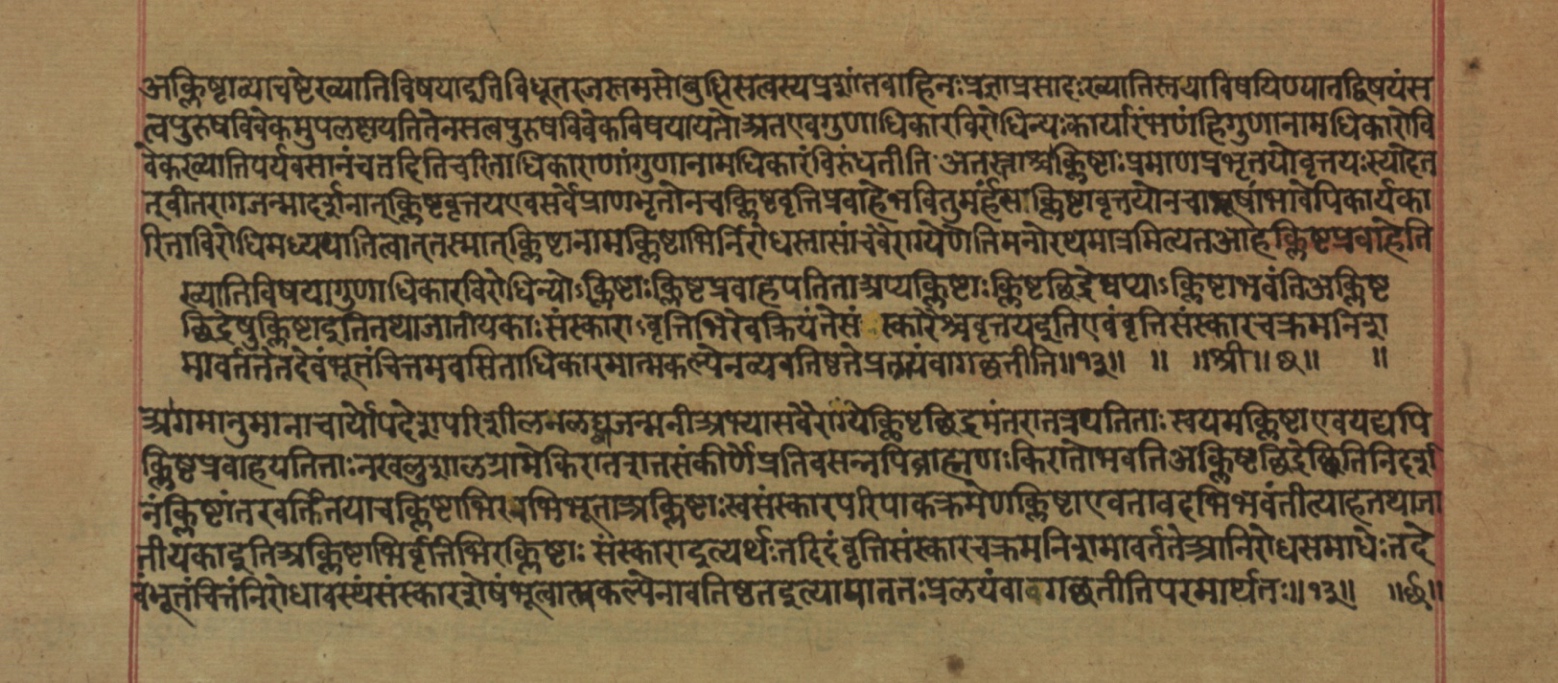 अक्लिष्टाव्याचष्टेख्यातिविषयाइतिविधूतरजस्तमसोबुद्धिसत्वस्यप्रशांतवाहिनःप्रज्ञाप्रसादःख्यातिस्तयाविषयिण्यातद्विषयंस
त्वपुरुषविवेकमुपलक्षयतितेनसत्वपुरुषविवेकविषयायतोअतएवगुणाधिकारविरोधिन्यःकार्यारंभणंहिगुणानामधिकारोवि
वेकख्यातिपर्यवसानंचतदितिचरिताधिकाराणांगुणानामधिकारंविरुंधतीति अतस्ताअक्लिष्टाःप्रमाणप्रभृतयोवृत्तयःस्यादेत
त्वीतरागजन्मादर्शनात्क्लिष्टवृत्तयएवसर्वेप्राणभृतोनचक्लिष्टवृत्तिप्रवाहेभवितुमर्हंसाक्लिष्टावृत्तयोनचामूषांभावेपिकार्यका
रिताविरोधिमध्यपातित्वात्तस्मात्क्लिष्टानामक्लिष्टाभिर्निरोधस्तासांचवैराग्येणेतिमनोरथमात्रमित्यतआहक्लिष्टप्रवाहेति
ख्यातिविषयागुणाधिकारविरोधिन्योऽक्लिष्टाःक्लिष्टप्रवाहपतिताअप्यक्लिष्टाःक्लिष्टछिद्रेष्वप्याऽक्लिष्टाभवंतिअक्लिष्ट
छिद्रेषुक्लिष्टाइतितथाजातीयकाःसंस्कारावृत्तिभिरेवक्रियंतेसं स्कारैश्चवृत्तयइतिएवंवृत्तिसंस्कारचक्रमनिशा
मावर्ततेतदेवंभूतंचित्तमवसिताधिकारमात्मकल्पेनव्यवतिष्ठतेप्रलयंवागछतीति॥१३॥ ॥ ॥श्री॥छ॥ ॥
आगमानुमानाचार्योपदेशपरिशीलनलब्धजन्मनीअभ्यासवैराग्येक्लिष्टछिद्रमंतरातत्रपतिताःस्वयमक्लिष्टाएवयद्यपि
क्लिष्टप्रवाहपतिताःनखलुशालग्रामेकिरातशतसंकीर्णेप्रतिवसन्नपिब्राह्मणःकिरातोभवतिअक्लिष्टछिद्रेष्वितिनिदर्श
नंक्लिष्टांतरवर्तितयाचक्लिष्टाभिरनभिभूताअक्लिष्टाःस्वसंस्कारपरिपाकक्रमेणक्लिष्टाएवतावदभिभवंतीत्याहतथाजा
तीयकाइतिअक्लिष्टाभिर्वृत्तिभिरक्लिष्टाः संस्काराइत्यर्थःतदिदंवृत्तिसंस्कारचक्रमनिशमावर्ततेआनिरोधसमाधेःतदे
वंभूतंचित्तंनिरोधावस्थंसंस्कारशेषंभूत्वात्मकल्पेनावतिष्ठतइत्यापाततःप्रलयंवागछतीतिपरमार्थतः॥१३॥ ॥छ॥